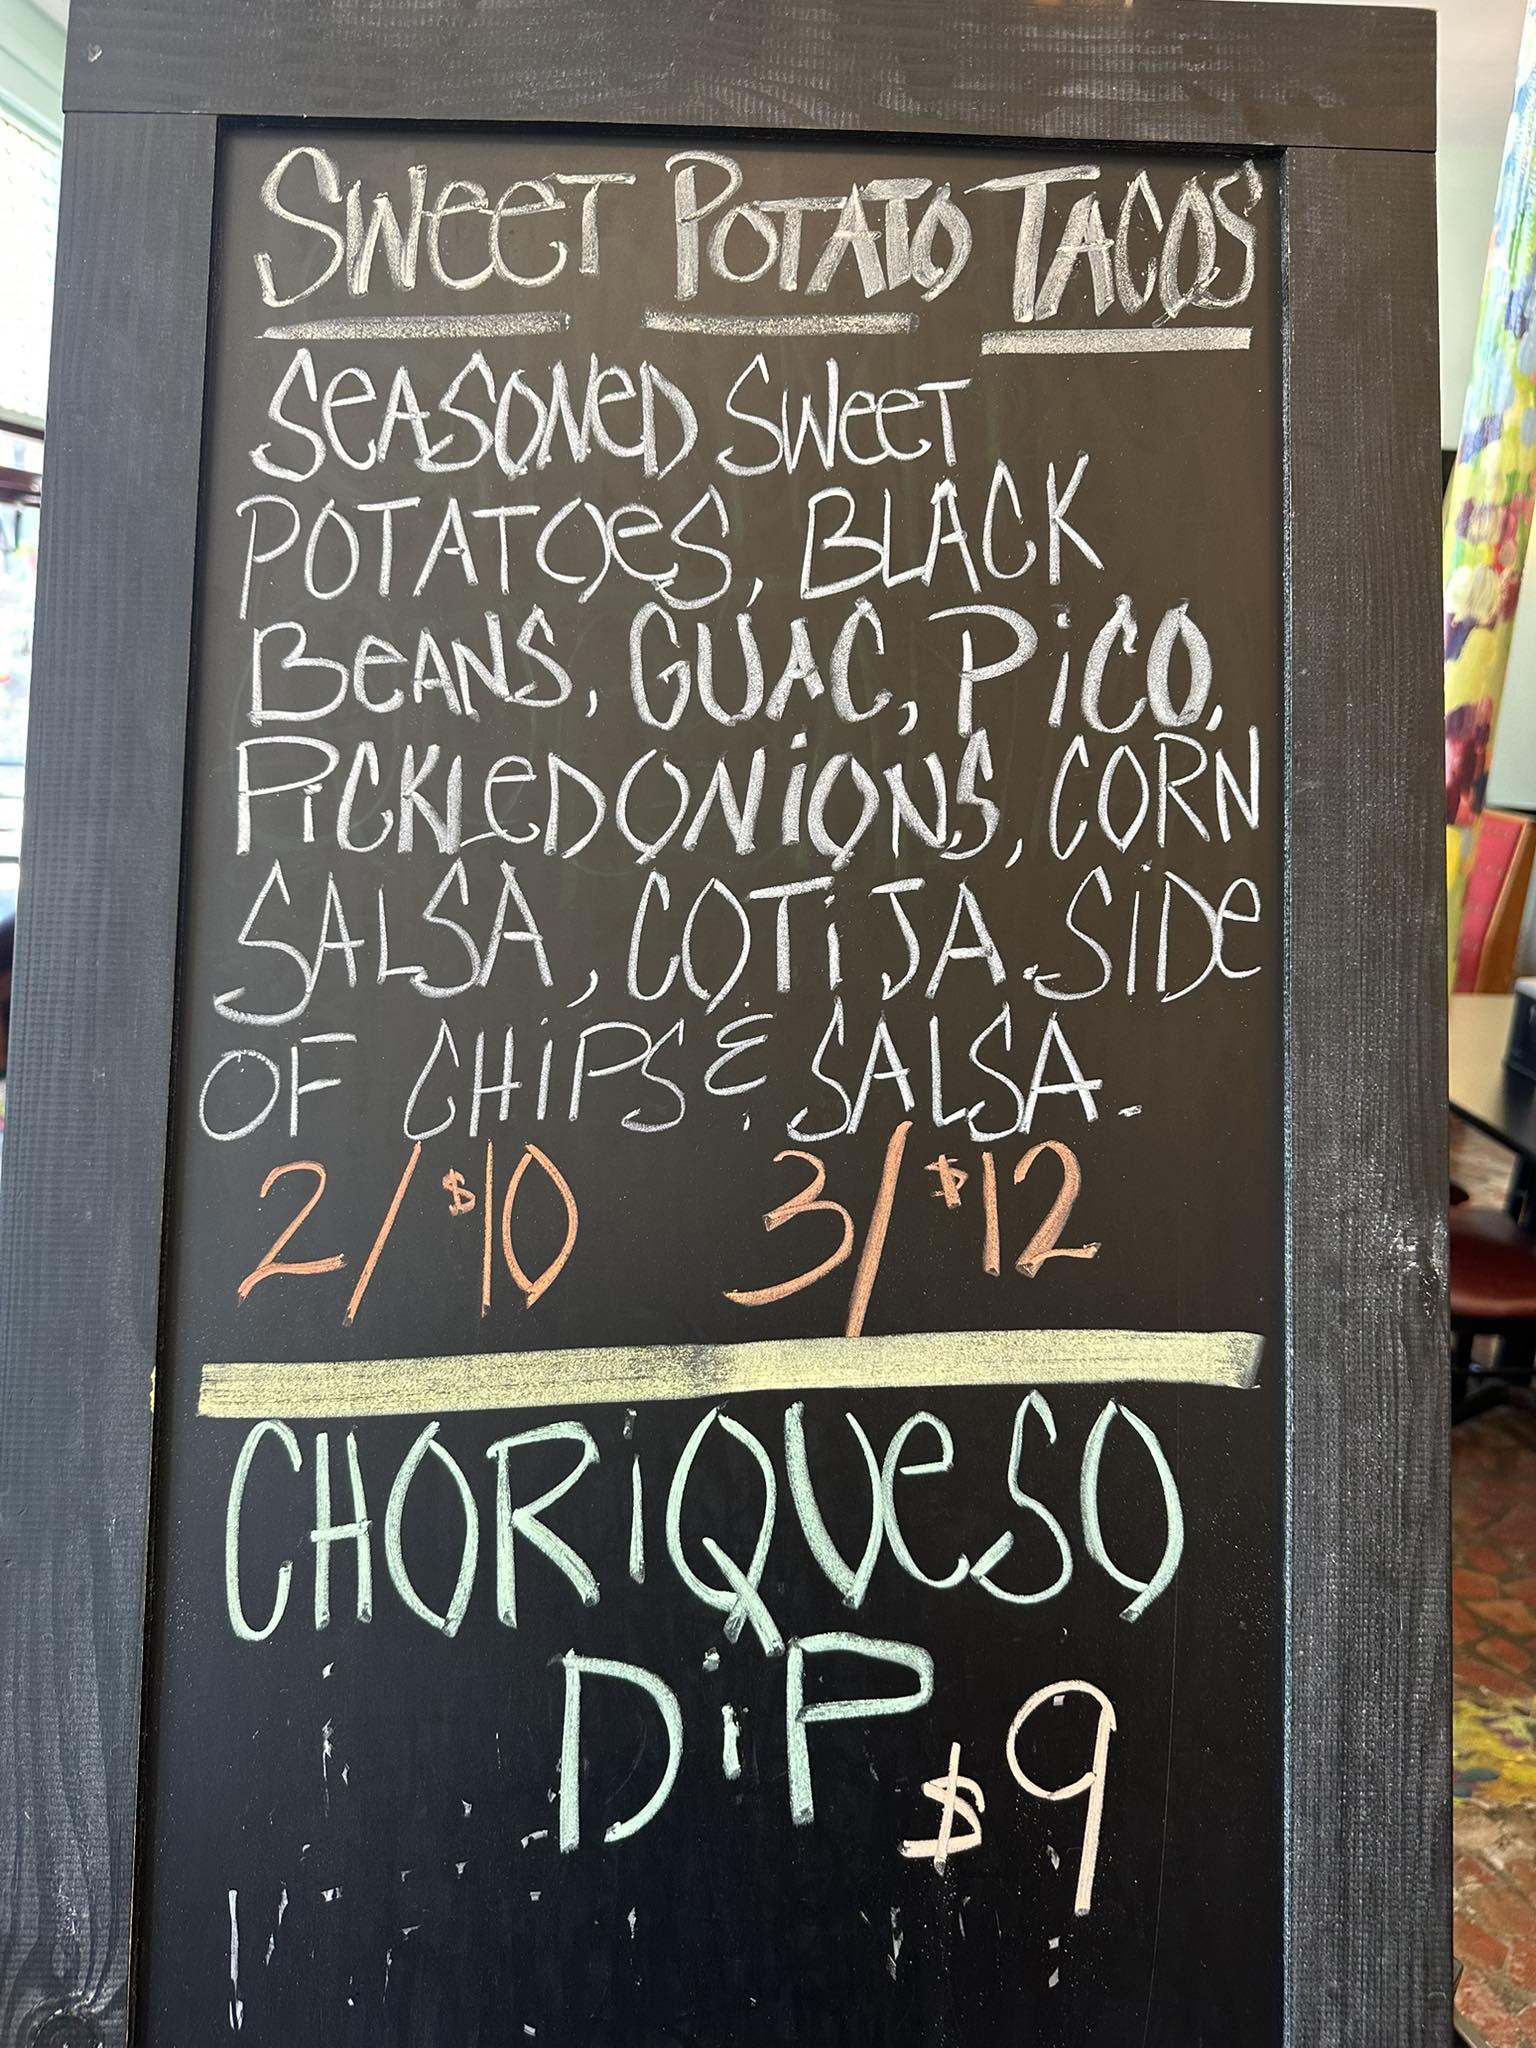 SWeeT POTATO TACOS
SeASONeD SWeeT
POTATOeS, BLACK
BeANS, GUAC, PiCO,
PiCKLeD ONiONS, CORN
SALSA, COTiJA. SiDe
OF CHiPS & SALSA.
2/$10 3/$12
CHORiQUeSO
DiP $9